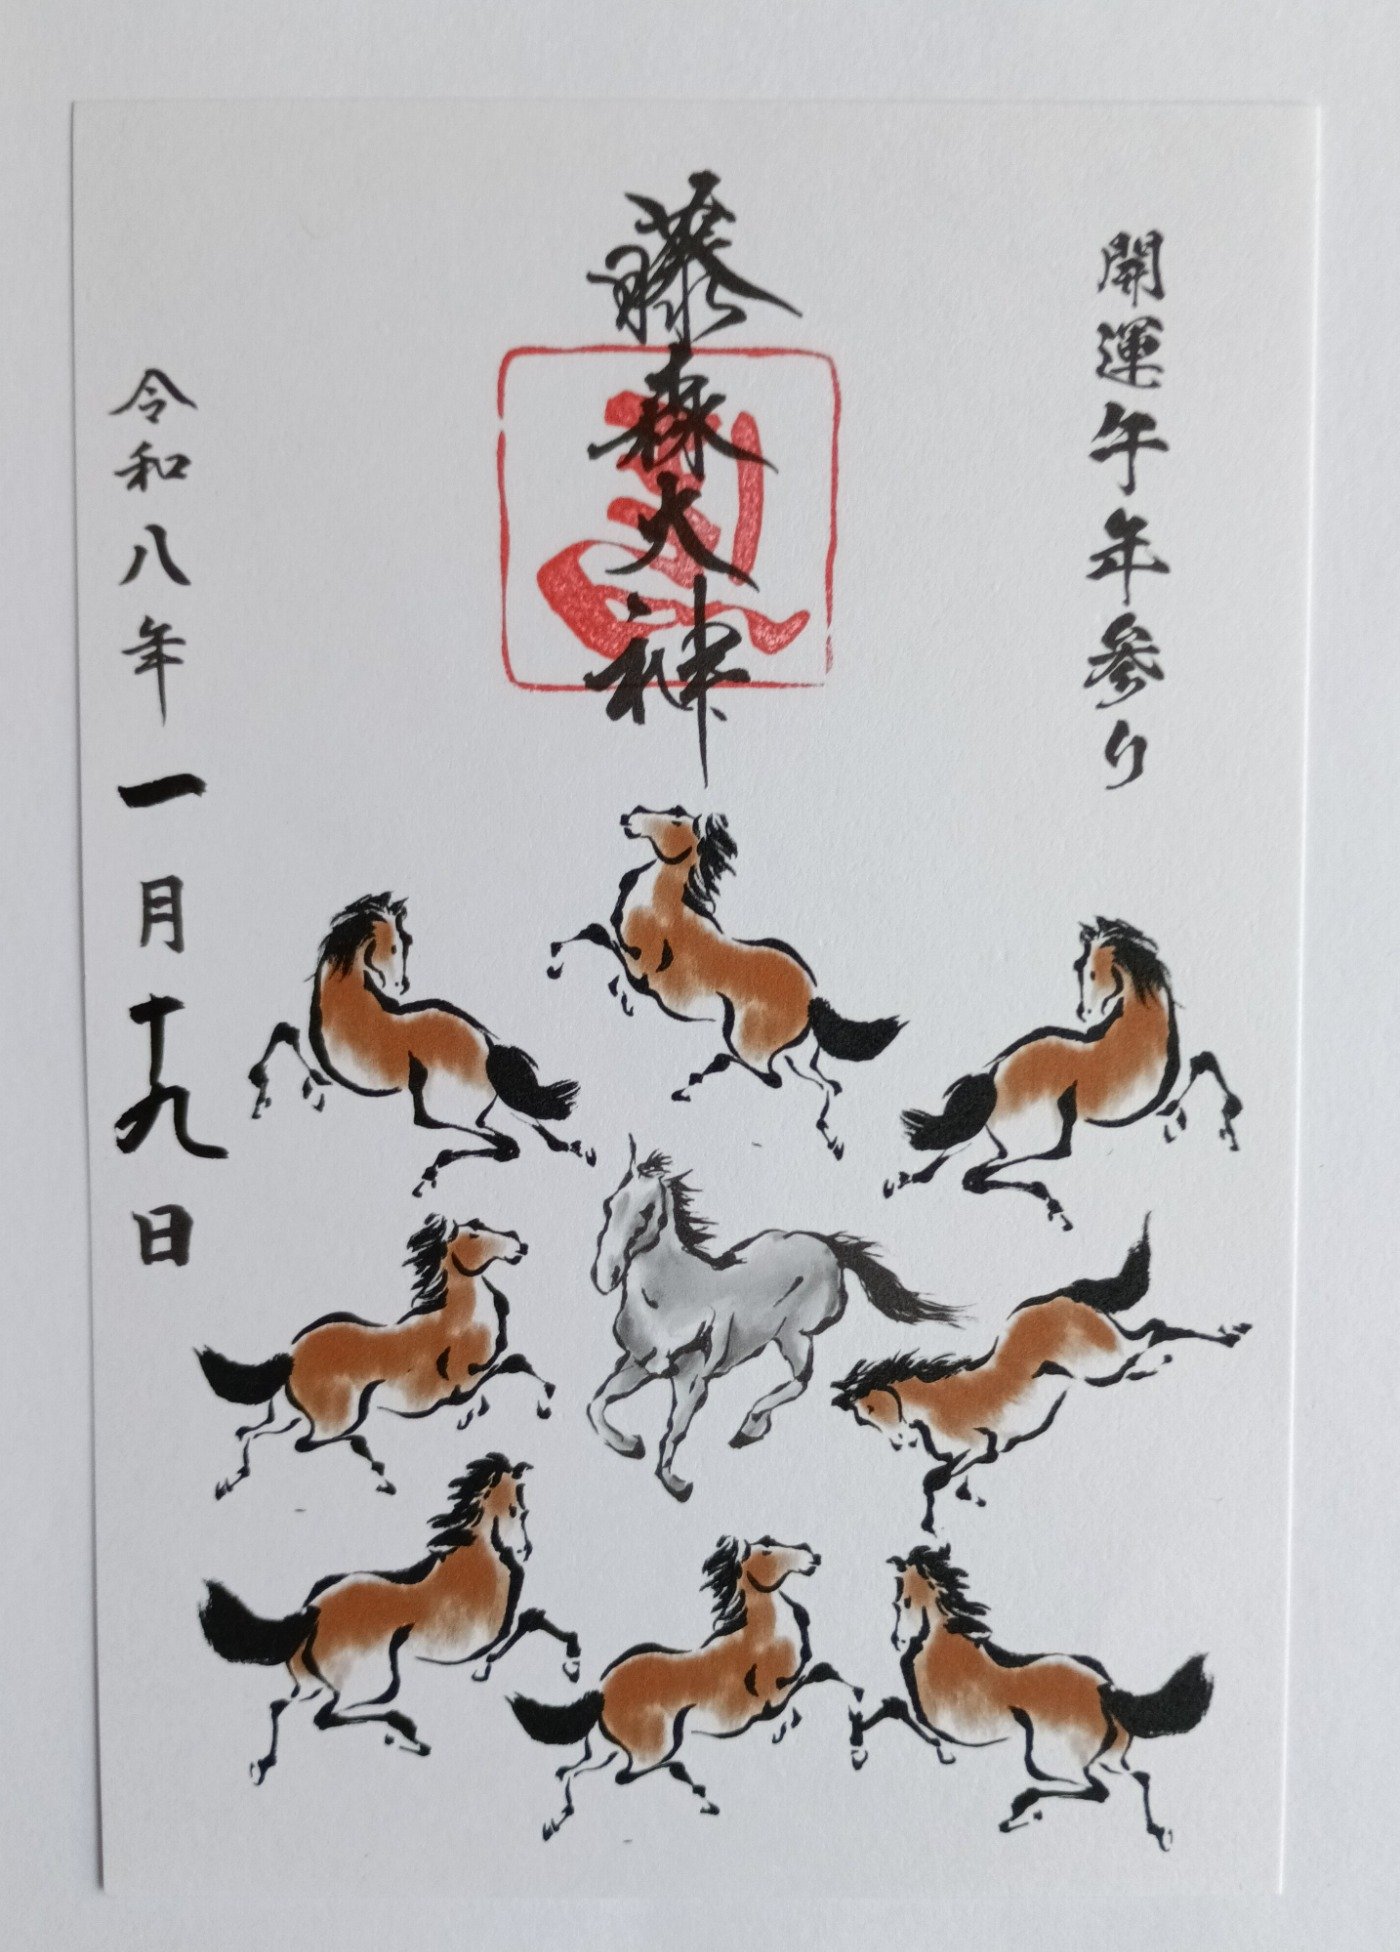 開運午年参り
藤森大神
令和八年一月十九日